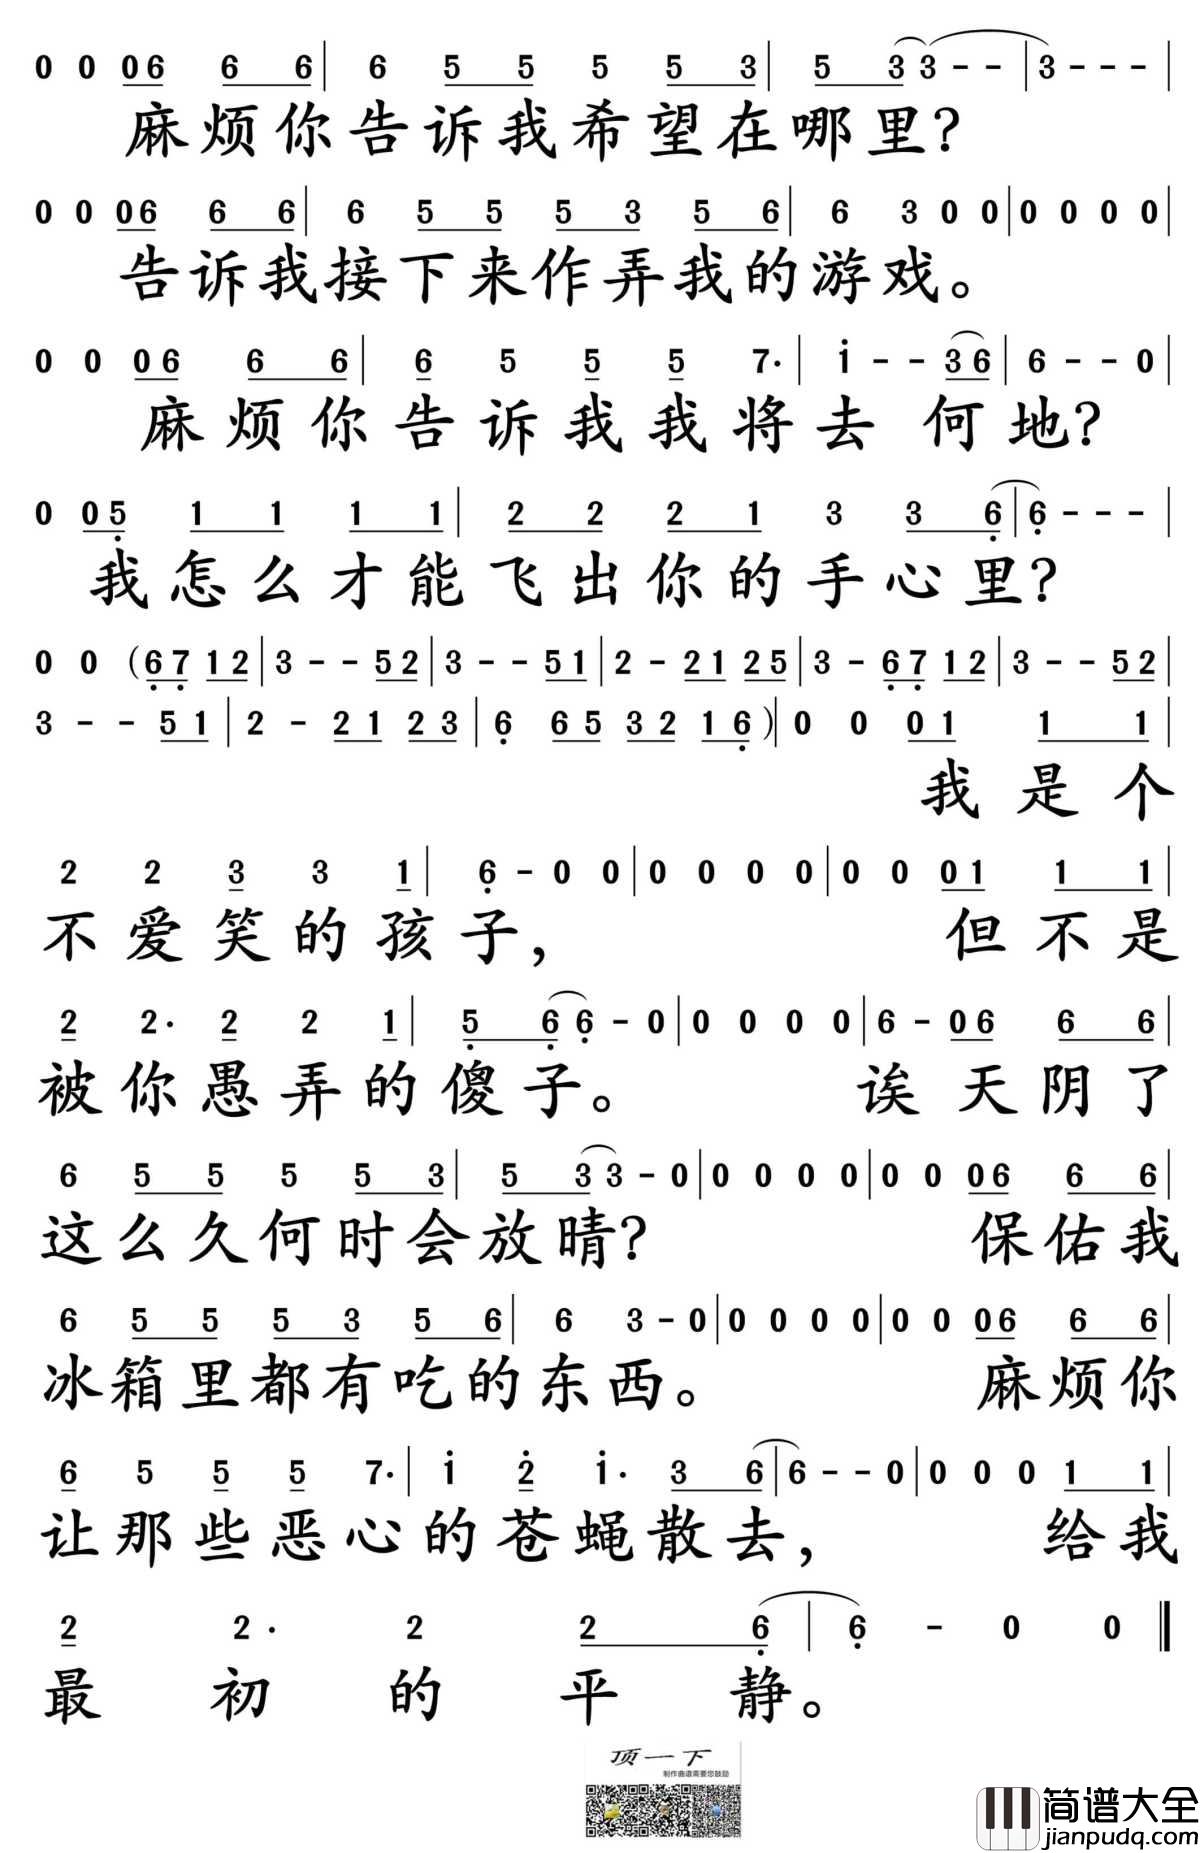 0 0 06 6 6 | 6 5 5 5 5 3 | 5 3 3 - - | 3 - - - |
麻烦你告诉我希望在哪里？
0 0 06 6 6 | 6 5 5 5 3 5 6 | 6 3 0 0 | 0 0 0 0 |
告诉我接下来作弄我的游戏。
0 0 06 6 6 | 6 5 5 5 7· | i - - 3 6 | 6 - - 0 |
麻烦你告诉我我将去 何地？
0 05 1 1 1 1 | 2 2 2 1 3 3 6 | 6 - - - |
我怎么才能飞出你的手心里？
0 0 (67 12 | 3 - - 52 | 3 - - 51 | 2 - 21 25 | 3 - 67 12 | 3 - - 52 |
3 - - 51 | 2 - 21 23 | 6 65 32 16) | 0 0 01 1 1 |
我是个
2 2 3 3 1 | 6 - 0 0 | 0 0 0 0 | 0 0 01 1 1 |
不爱笑的孩子， 但不是
2 2· 2 2 1 | 5 6 6 - 0 | 0 0 0 0 | 6 - 06 6 6 |
被你愚弄的傻子。 诶天阴了
6 5 5 5 5 3 | 5 3 3 - 0 | 0 0 0 0 | 0 0 06 6 6 |
这么久何时会放晴？ 保佑我
6 5 5 5 3 5 6 | 6 3 - 0 | 0 0 0 0 | 0 0 06 6 6 |
冰箱里都有吃的东西。 麻烦你
6 5 5 5 7· | i 2 i· 3 6 | 6 - - 0 | 0 0 0 1 1 |
让那些恶心的苍蝇散去， 给我
2 2· 2 2 6 | 6 - 0 0 ‖
最初的平静。
顶一下
制作曲谱需要您鼓励
简谱大全
jianpudq.com